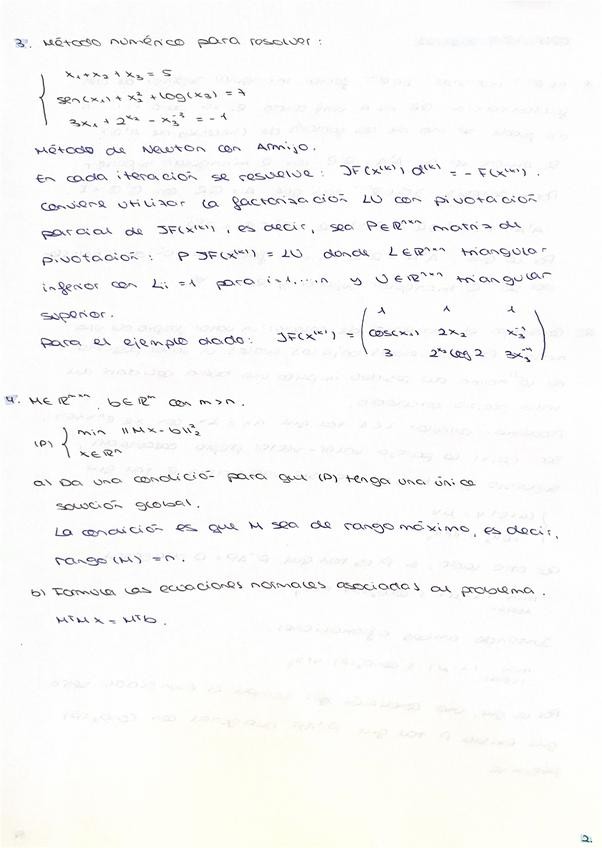 3. Método numérico para resolver:
x₁ + x₂ + x₃ = 5
sen(x₁) + x₂² + log(x₃) = 7
3x₁ + 2^x₂ - x₃⁻³ = -1
Método de Newton con Armijo.
En cada iteración se resuelve: JF(x⁽ᵏ⁾) d⁽ᵏ⁾ = -F(x⁽ᵏ⁾).
Conviene utilizar la factorización LU con pivotación
parcial de JF(x⁽ᵏ⁾), es decir, sea P∈ℝⁿˣⁿ matriz de
pivotación: P JF(x⁽ᵏ⁾) = LU donde L∈ℝⁿˣⁿ triangular
inferior con Lᵢᵢ = 1 para i=1,...,n y U∈ℝⁿˣⁿ triangular
superior.
Para el ejemplo dado: JF(x⁽ᵏ⁾) =
1 1 1
cos(x₁) 2x₂ x₃⁻¹
3 2^x₂ log 2 3x₃⁻⁴
4. M∈ℝᵐˣⁿ, b∈ℝᵐ con m>n.
(P) { min ||Mx - b||₂²
x∈ℝⁿ
a) Da una condición para que (P) tenga una única
solución global.
La condición es que M sea de rango máximo, es decir,
rango(M) = n.
b) Formula las ecuaciones normales asociadas al problema.
MᵀMx = Mᵀb.
2.